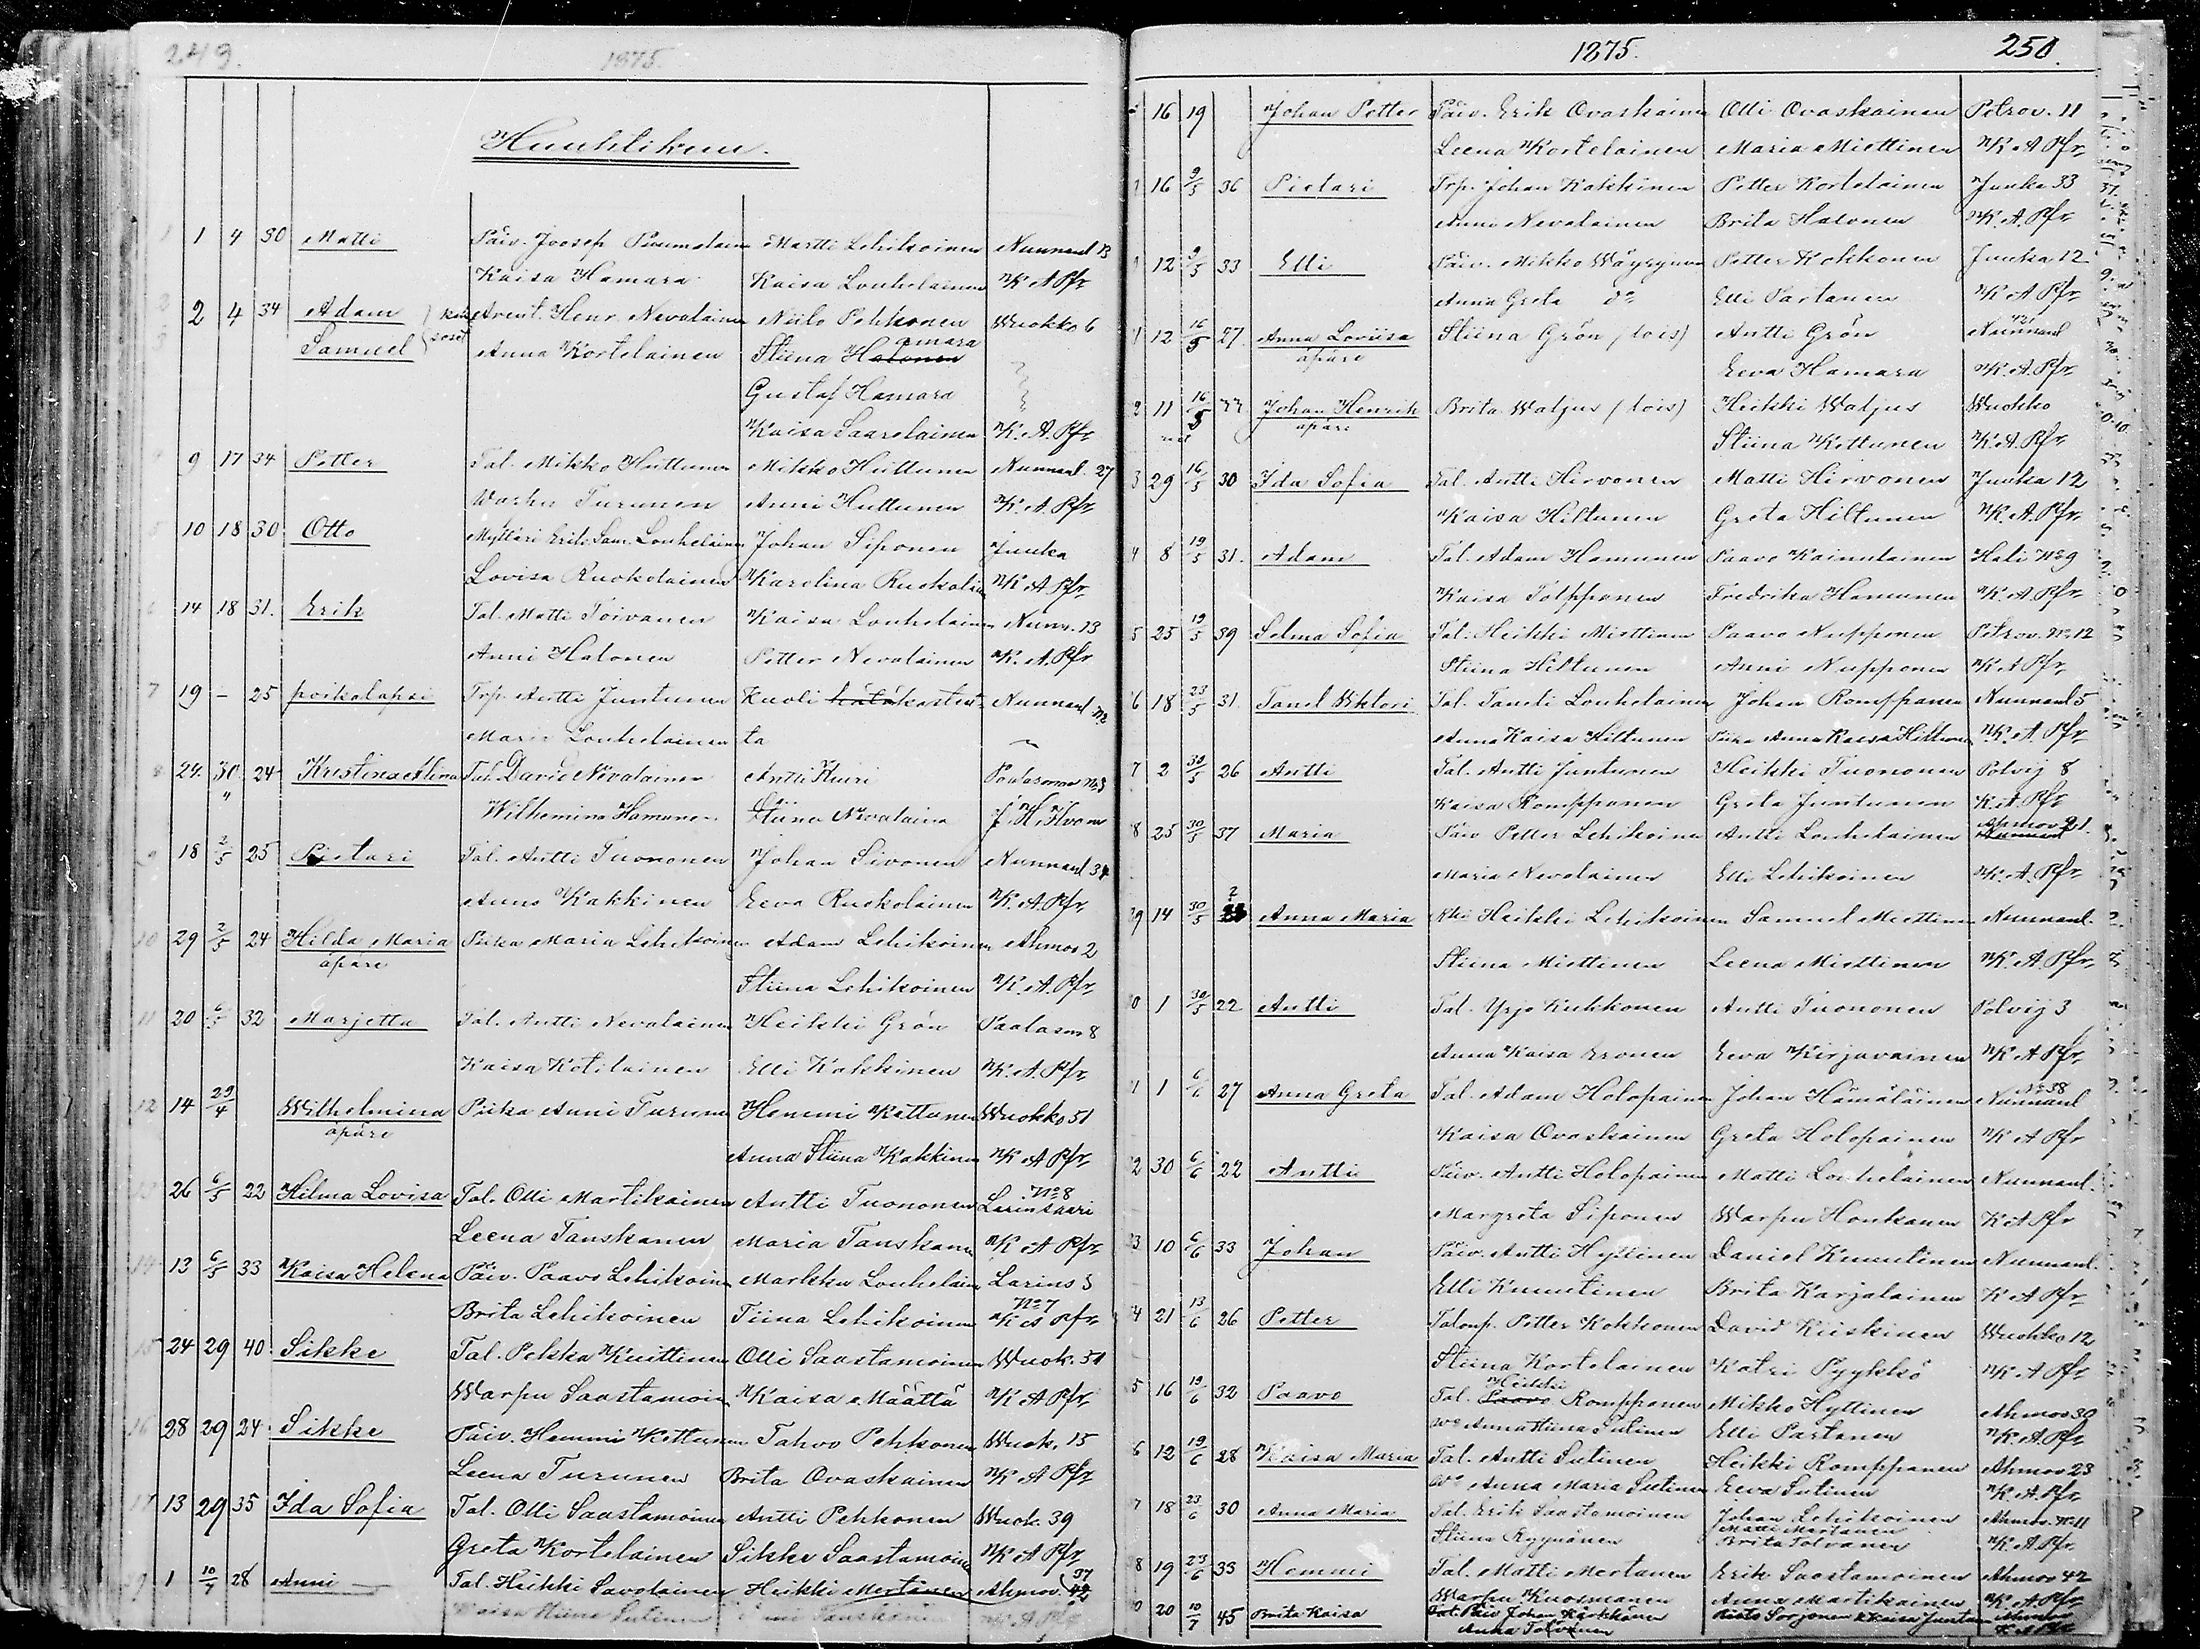 249. 1875.
Huuhtikuu.
1 1 4 30 Matti Päiv. Joosep Martti Lehikoinen Nunnanl 13
Kaisa Hamara Kaisa Louhelainen K A Pfr
2 4 34 Adam Arent. Henr. Nevalainen Niilo Pehkonen Wuokko 6
Samuel Anna Kortelainen Stiina Halonen amara
Gustaf Hamara
Kaisa Saarelainen K. A. Pfr
9 17 34 Petter Tal. Mikko Huttunen Mikko Huttunen Nunnanl. 27
Turunen Anni Huttunen K. A. Pfr
5 10 18 30 Otto Mylläri Erik Sam. Louhelainen Johan Siponen Juuka
Lovisa Ruokolainen Karolina K A Pfr
14 18 31. Erik Tal. Matti Toivanen Kaisa Louhelainen Nunn. 13
Anni Halonen Petter Nevalainen K. A. Pfr
7 19 - 25 poikalapsi Trp. Antti Juntunen Kuoli hätä Nunnanl
Maria Louhelainen ta
8 24. 30 24 Kristina Alina Tal. David Nevalainen Antti
Wilhemina Hamunen Stiina Nevalainen
9 18 2/5 25 Pietari Tal. Antti Tuononen Johan Sivonen Nunnanl 34
Anna Kakkinen Eeva Ruokolainen K. A. Pfr
10 29 2/5 24 Hilda Maria Piika Maria Lehikoinen Adam Lehikoinen Ahmov 2
äpäre Stiina Lehikoinen K. A. Pfr
11 20 6/5 32 Marjetta Tal. Antti Nevalainen Heikki Grön Paalasm 8
Kaisa Kotilainen Elli Kakkinen K. A. Pfr
12 14 23/4 Wilhelmina Piika Anni Turunen Hemmi Kettunen Wuokko 51
äpäre Anna Stiina Kakkinen K A Pfr
26 6/5 22 Hilma Lovisa Tal. Olli Martikainen Antti Tuononen Larinsaari No 8
Leena Tanskanen Maria Tanskanen K A Pfr
14 13 6/5 33 Kaisa Helena Päiv. Paavo Lehikoinen Markku Louhelainen Larins
Brita Lehikoinen Tiina Lehikoinen No 7 K A Pfr
15 24 29 40. Sikke Tal. Pekka Kuittinen Olli Saastamoinen Wuok. 51
Warpu Saastamoin Kaisa Määttä K A Pfr
16 28 29 24 Sikke Päiv. Hemmi Kettunen Tahvo Pehkonen Wuok. 15
Leena Turunen Brita Ovaskainen K A Pfr
17 13 29 35 Ida Sofia Tal. Olli Saastamoinen Antti Pehkonen Wuok. 39
Greta Kortelainen Sikke Saastamoin K A Pfr
1 10/7 28 Anni Tal. Heikki Savolainen Heikki Mertanen Ahmov. 37
Kaisa Stiina Sutinen Tanskanen K A Pfr
1875. 250.
16 19 Johan Petter Päiv. Erik Ovaskainen Olli Ovaskainen Petrov. 11
Leena Kortelainen Maria Miettinen K A Pfr
16 9/5 36 Pietari Trp. Johan Kakkinen Petter Kortelainen Juuka 33
Anni Nevalainen Brita Halonen K. A. Pfr
12 9/5 33 Elli Päiv. Mikko Wäyrynen Petter Kokkonen Juuka 12
Anna Greta do Elli Partanen K A Pfr
12 16/5 27 Anna Loviisa Stiina Grön (lois) Antti Grön Nunnanl
äpäre Eeva Hamara K. A. Pfr
2 11 16/5 Johan Henrik Brita Waljus (lois) Heikki Waljus Wuokko
äpäre Stiina Kettunen K A Pfr
3 29 16/5 30 Ida Sofia Tal. Antti Hirvonen Matti Hirvonen Juuka 12
Kaisa Hiltunen Greta Hiltunen K. A. Pfr
4 8 19/5 31. Adam Tal. Adam Hamunen Paavo Kainulainen Hali No 9
Kaisa Tolpponen Fredrika Hamunen K. A. Pfr
5 25 19/5 39 Selma Sofia Tal. Heikki Miettinen Paavo Nupponen Petrov. No 12
Stiina Hiltunen Anni Nupponen K A Pfr
6 18 23/5 31 Taneli Wiktori Tal. Taneli Louhelainen Johan Romppanen Nunnanl 5
Anna Kaisa Hiltunen Piika Anna Kaisa Hiltunen K. A. Pfr
7 2 30/5 26 Antti Tal. Antti Juntunen Heikki Tuononen Polvij 8
Kaisa Romppanen Greta Juntunen K. A. Pfr
8 25 30/5 37 Maria Päiv Petter Lehikoinen Antti Louhelainen Ahmov 21.
Maria Nevalainen Elli Lehikoinen K. A. Pfr
14 30/5 Anna Maria Heikki Lehikoinen Samuel Miettinen Nunnanl.
Stiina Miettinen Leena Miettinen K. A. Pfr
1 30/5 22 Antti Tal. Yrjo Kukkonen Antti Tuononen Polvij 3
Anna Kaisa Eronen Eeva Kirjavainen K A Pfr
1 6/6 27 Anna Greta Tal. Adam Holopainen Johan Hämäläinen Nunnanl No 38
Kaisa Ovaskainen Greta Holopainen K A Pfr
2 30 6/6 22 Antti Päiv. Antti Holopainen Matti Louhelainen Nunnanl.
Margreta Siponen Warpu Honkanen K A Pfr
3 10 6/6 33 Johan Päiv. Antti Hyttinen Daniel Kuuutinen Nunnanl.
Elli Brita Karjalainen K A Pfr
4 21 13/6 26 Petter Talonp. Petter Kokkonen David Kiiskinen Wuokko 12
Stiina Kortelainen Katri Pyykkö K A Pfr
5 16 19/6 32 Paavo Tal. Paavo Heikki Romppanen Mikko Hyttinen Ahmov 30
Wo Anna Stiina Sutinen Elli Partanen K. A. Pfr
6 12 19/6 28 Kaisa Maria Tal. Antti Sutinen Heikki Romppanen Ahmov 23
Wo Anna Maria Sutinen Eeva Sutinen K. A. Pfr
7 18 23/6 30 Anna Maria Tal. Erik Saastamoinen Johan Lehikoinen Ahmov. No 11
Stiina Ryynänen Matti Mertanen Brita Tolvanen K. A. Pfr
19 23/6 33 Hemmi Tal. Matti Mertanen Erik Saastamoinen Ahmov 42
Warpu Kuosmanen Anna Martikainen K. A. Pfr
20 10/7 45 Brita Kaisa Päiv Johan Kärkkänen Risto Sorjonen Kaisa
Anna Tolvanen